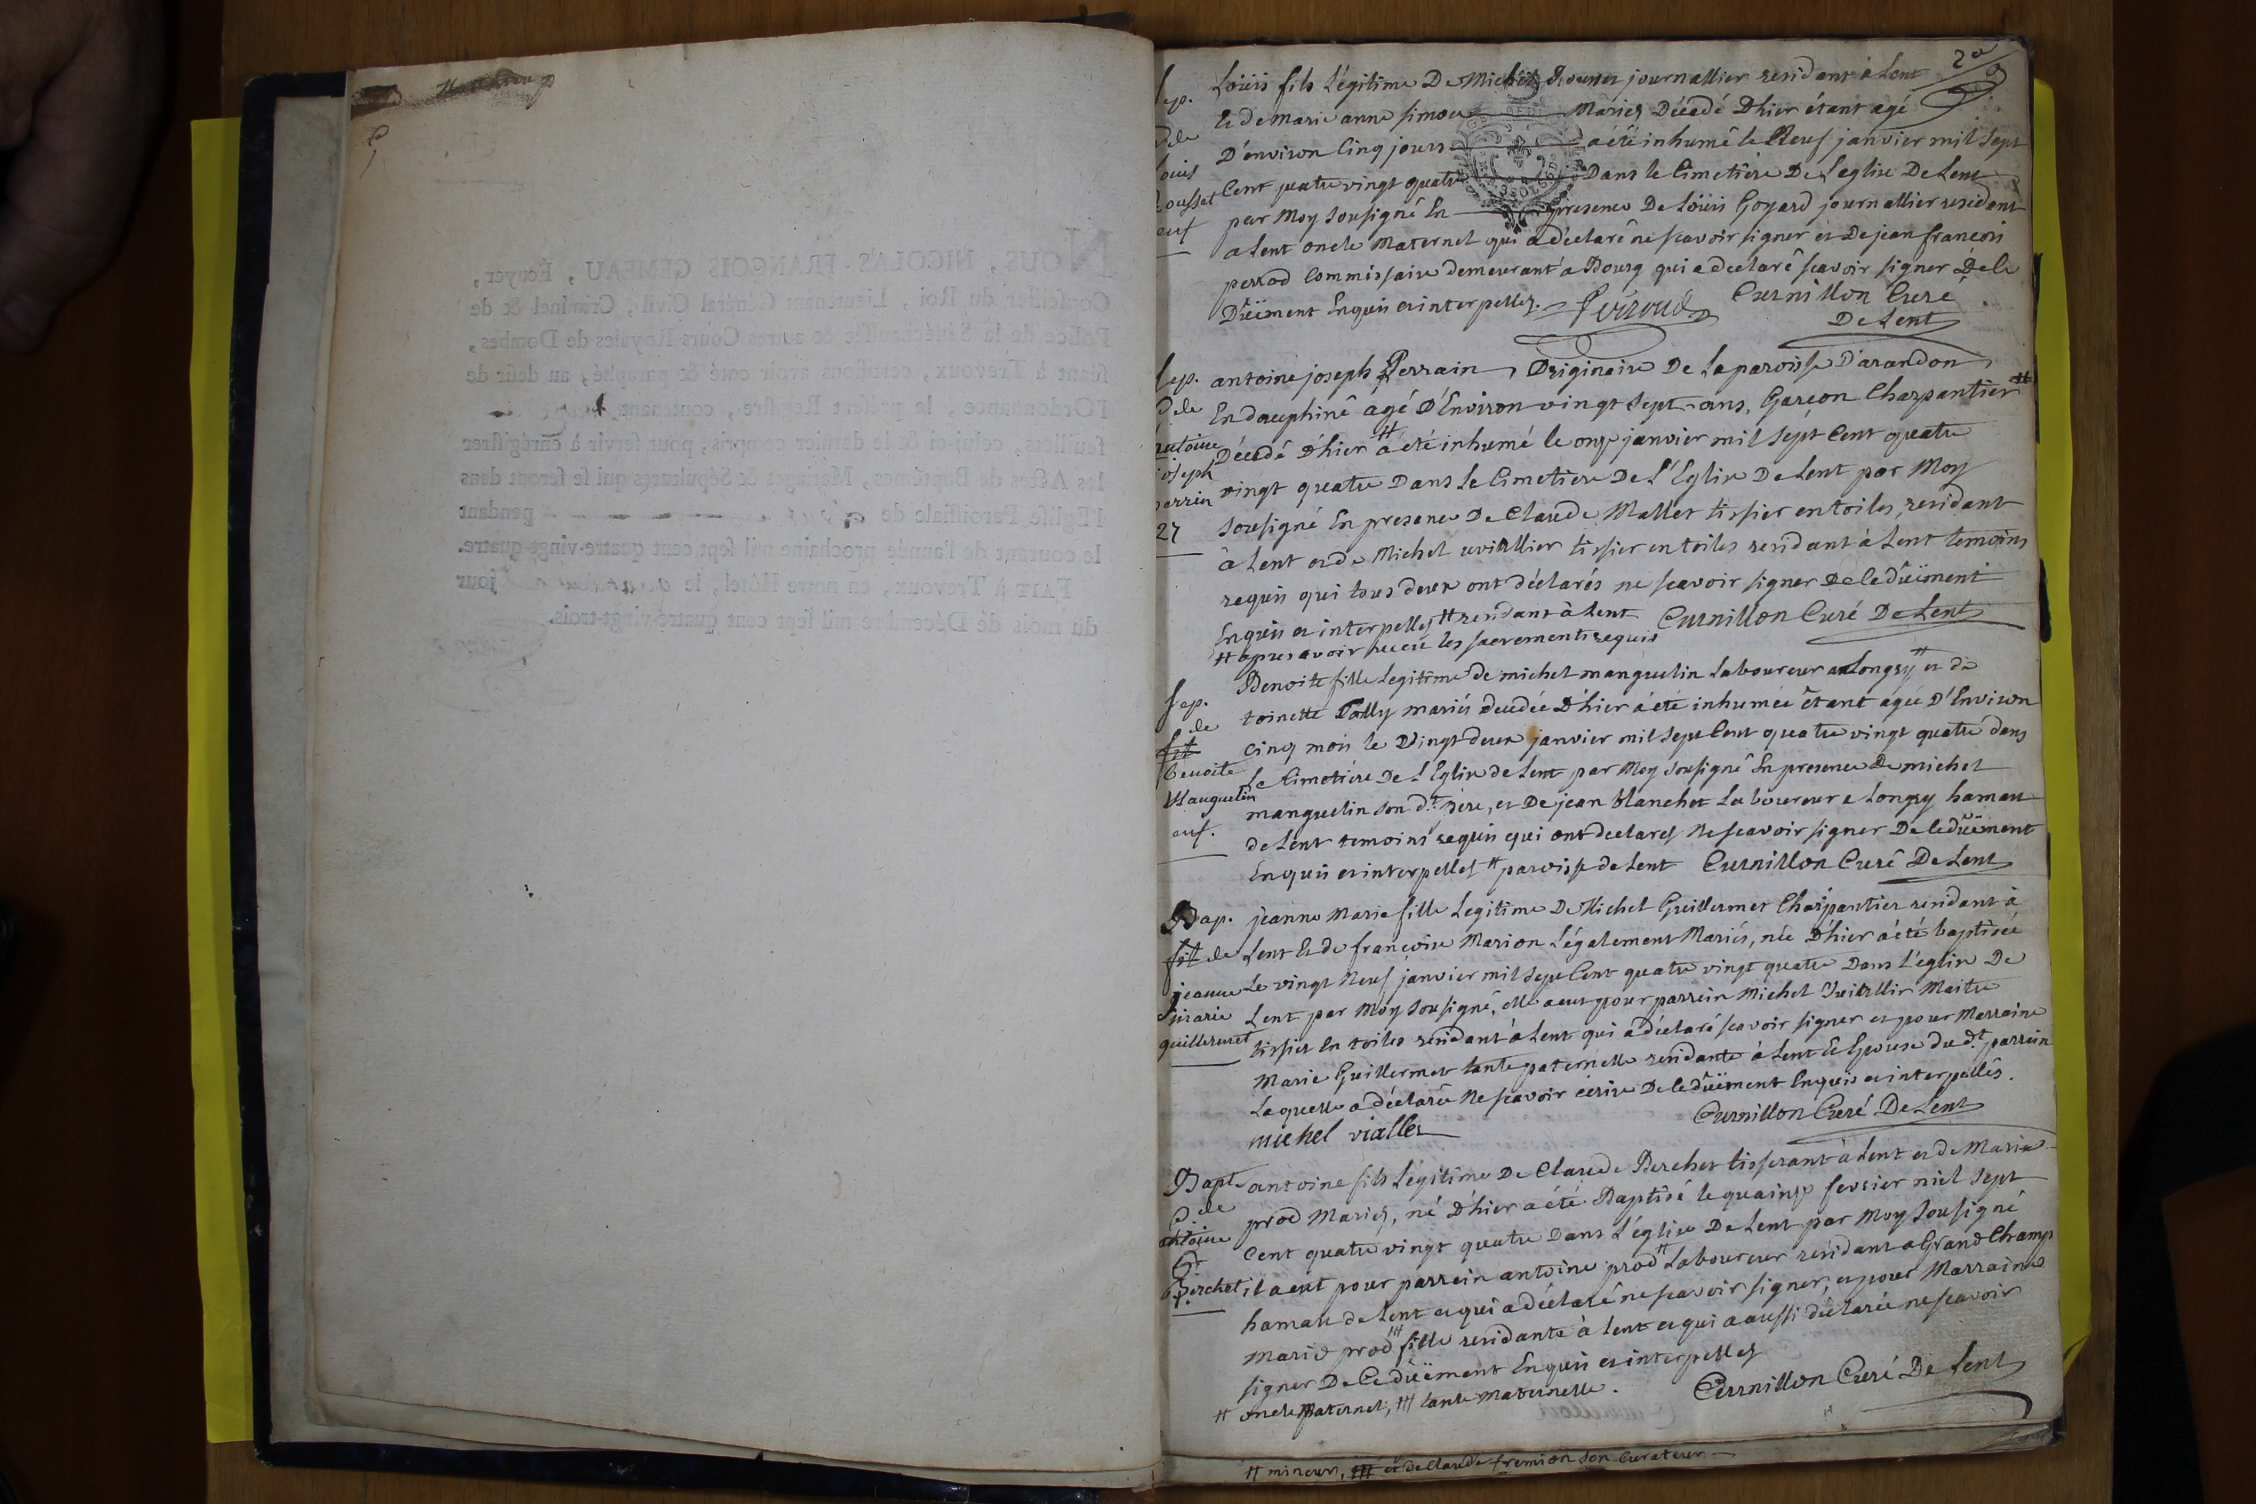 2e
Sep.
de
Louis
Rousset
enf
Loüis fils Légitime De Michel Rousset journallier residant à Lent
Et de marie anne simon Mariés Décedé D'hier étant agé
D'environ Cinq jours a été inhumé le Neuf janvier mil sept
Cent quatre vingt quatre Dans le Cimetière De L'eglise De Lent
par Moy Sousigné En presence De Loüis Goyard journallier residant
a Lent oncle Maternel qui a déclaré ne scavoir signer et De jean francois
perrod Commissaire demeurant a Bourg qui a declaré scavoir signer De Ce
Düement Enquis et interpellez. Curnillon Curé
De Lent
Sep.
de
antoine
joseph
perrin
27
antoine joseph Perrain Originaire De La paroisse D'arandon
En dauphiné âgé D'Environ vingt sept ans, Garçon Charpantier #
Décedé D'hier # a été inhumé le onze janvier mil sept Cent quatre
vingt quatre Dans Le Cimetiere De L'Eglise De Lent par Moy
Sousigné En presence De Claude Mallet tissier en toiles, residant
à Lent et de Michel tissier en toiles residant à Lent temoins
requis qui tous deux ont déclarés ne scavoir signer De Ce düement
Enquis et interpellez # residant à Lent Curnillon Curé De Lent
# apres avoir receu les sacrements requis
Sep.
de
Benoite
Manguelin
enf.
Benoite fille Legitime de michel manguelin Laboureur a Longry # et de
toinette Mariés decedée D'hier a été inhumée étant agée D'Environ
cinq mois le Vingt deux janvier mil sept Cent quatre vingt quatre dans
Le Cimetière De L'Eglise de Lent par Moy Sousigné En presence De michel
manguelin son d.t père, et De jean blanchet Laboureur a Longry hameau
de Lent temoins requis qui ont declarés Ne scavoir signer De Ce düement
Enquis et interpellés # paroisse de Lent Curnillon Curé De Lent
Bap.
de
jeanne
marie
guillermet
jeanne Marie fille Legitime De Michel Guillermet Charpantier residant à
Lent Et de francoise Marion Légalement Mariés, née D'hier a été baptisée
Le vingt Neuf janvier mil Sept Cent quatre vingt quatre Dans L'eglise De
Lent par Moy Sousigné, elle a eut pour parrein Michel Maitre
tissier En toiles residant à Lent qui a déclaré scavoir signer et pour Marraine
Marie Guillermet tante paternelle residante à Lent Et Epouse du d.t parrein
Laquelle a déclarée Ne scavoir ecrire De Ce düement Enquis et interpellés.
michel viallet Curnillon Curé De Lent
Bapt
de
antoine
Berchet
antoine fils Légitime De Claude Berchet tisserant à Lent et de Marie
prod Mariés, né D'hier a été Baptisé le quainze fevrier mil Sept
Cent quatre vingt quatre Dans L'église De Lent par Moy Sousigné
il a eut pour parrein antoine prod # Laboureur residant a Grand Champ
hamau de Lent et qui a déclaré ne scavoir signer, et pour Marraine
Marie prod ### fille residante à Lent et qui a aussi déclarée ne scavoir
signer De Ce düement Enquis et interpellez
# oncle Maternel, ### tante Maternelle. Curnillon Curé De Lent
# mineurs, et De Claude fremion son Curateur
NOUS, NICOLAS-FRANÇOIS GEMEAU, Écuyer,
Conseiller du Roi, Lieutenant Général Civil, Criminel & de
Police de la Sénéchaussée & autres Cours Royales de Dombes,
séant à Trevoux, certifions avoir coté & paraphé, au desir de
l'Ordonnance, le présent Registre, contenant
feuillets, celui-ci & le dernier compris, pour servir à enrégistrer
les Actes de Baptêmes, Mariages & Sépultures qui se feront dans
l'Eglise Paroissiale de pendant
le courant de l'année prochaine mil sept cent quatre-vingt-quatre.
FAIT à Trevoux, en notre Hôtel, le jour
du mois de Décembre mil sept cent quatre-vingt-trois.